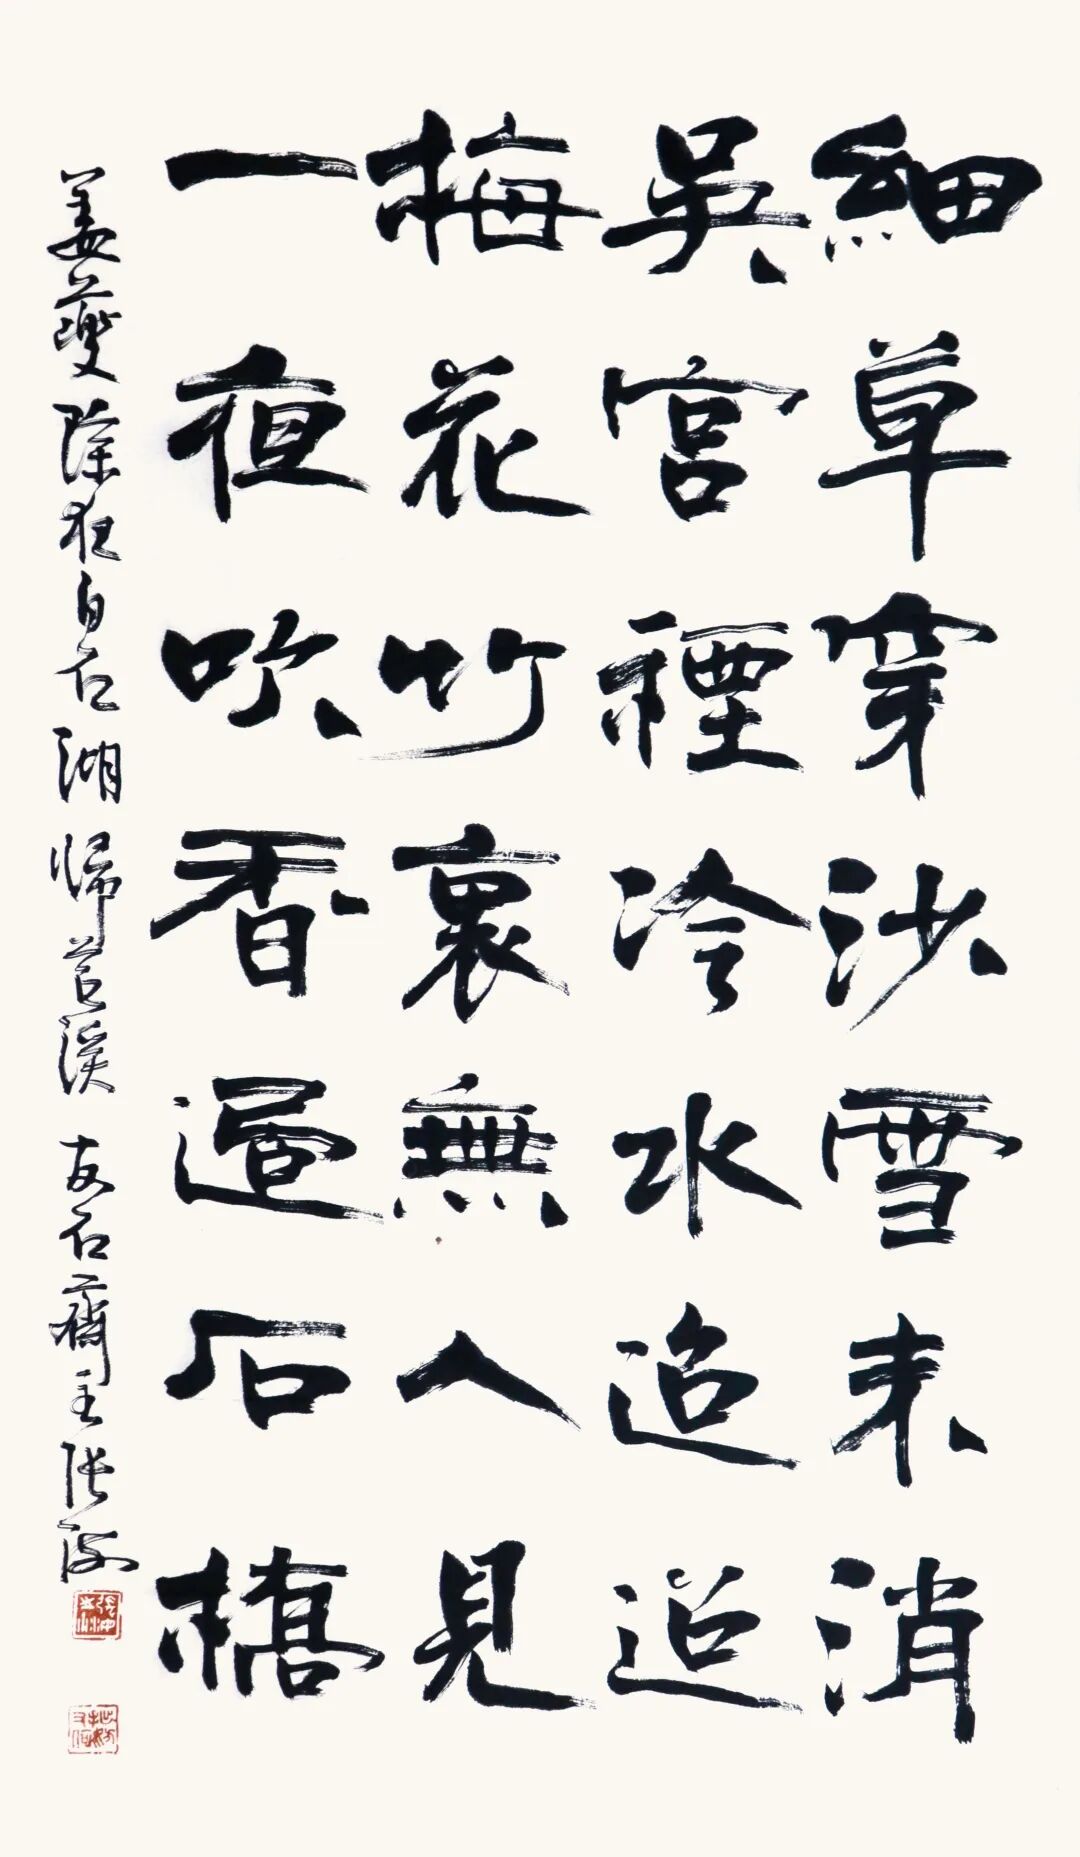 細草穿沙雪未消
吳宮煙冷水迢迢
梅花竹裏無人見
一夜吹香過石橋
姜夔除夜自石湖歸苕溪 友石齋主張